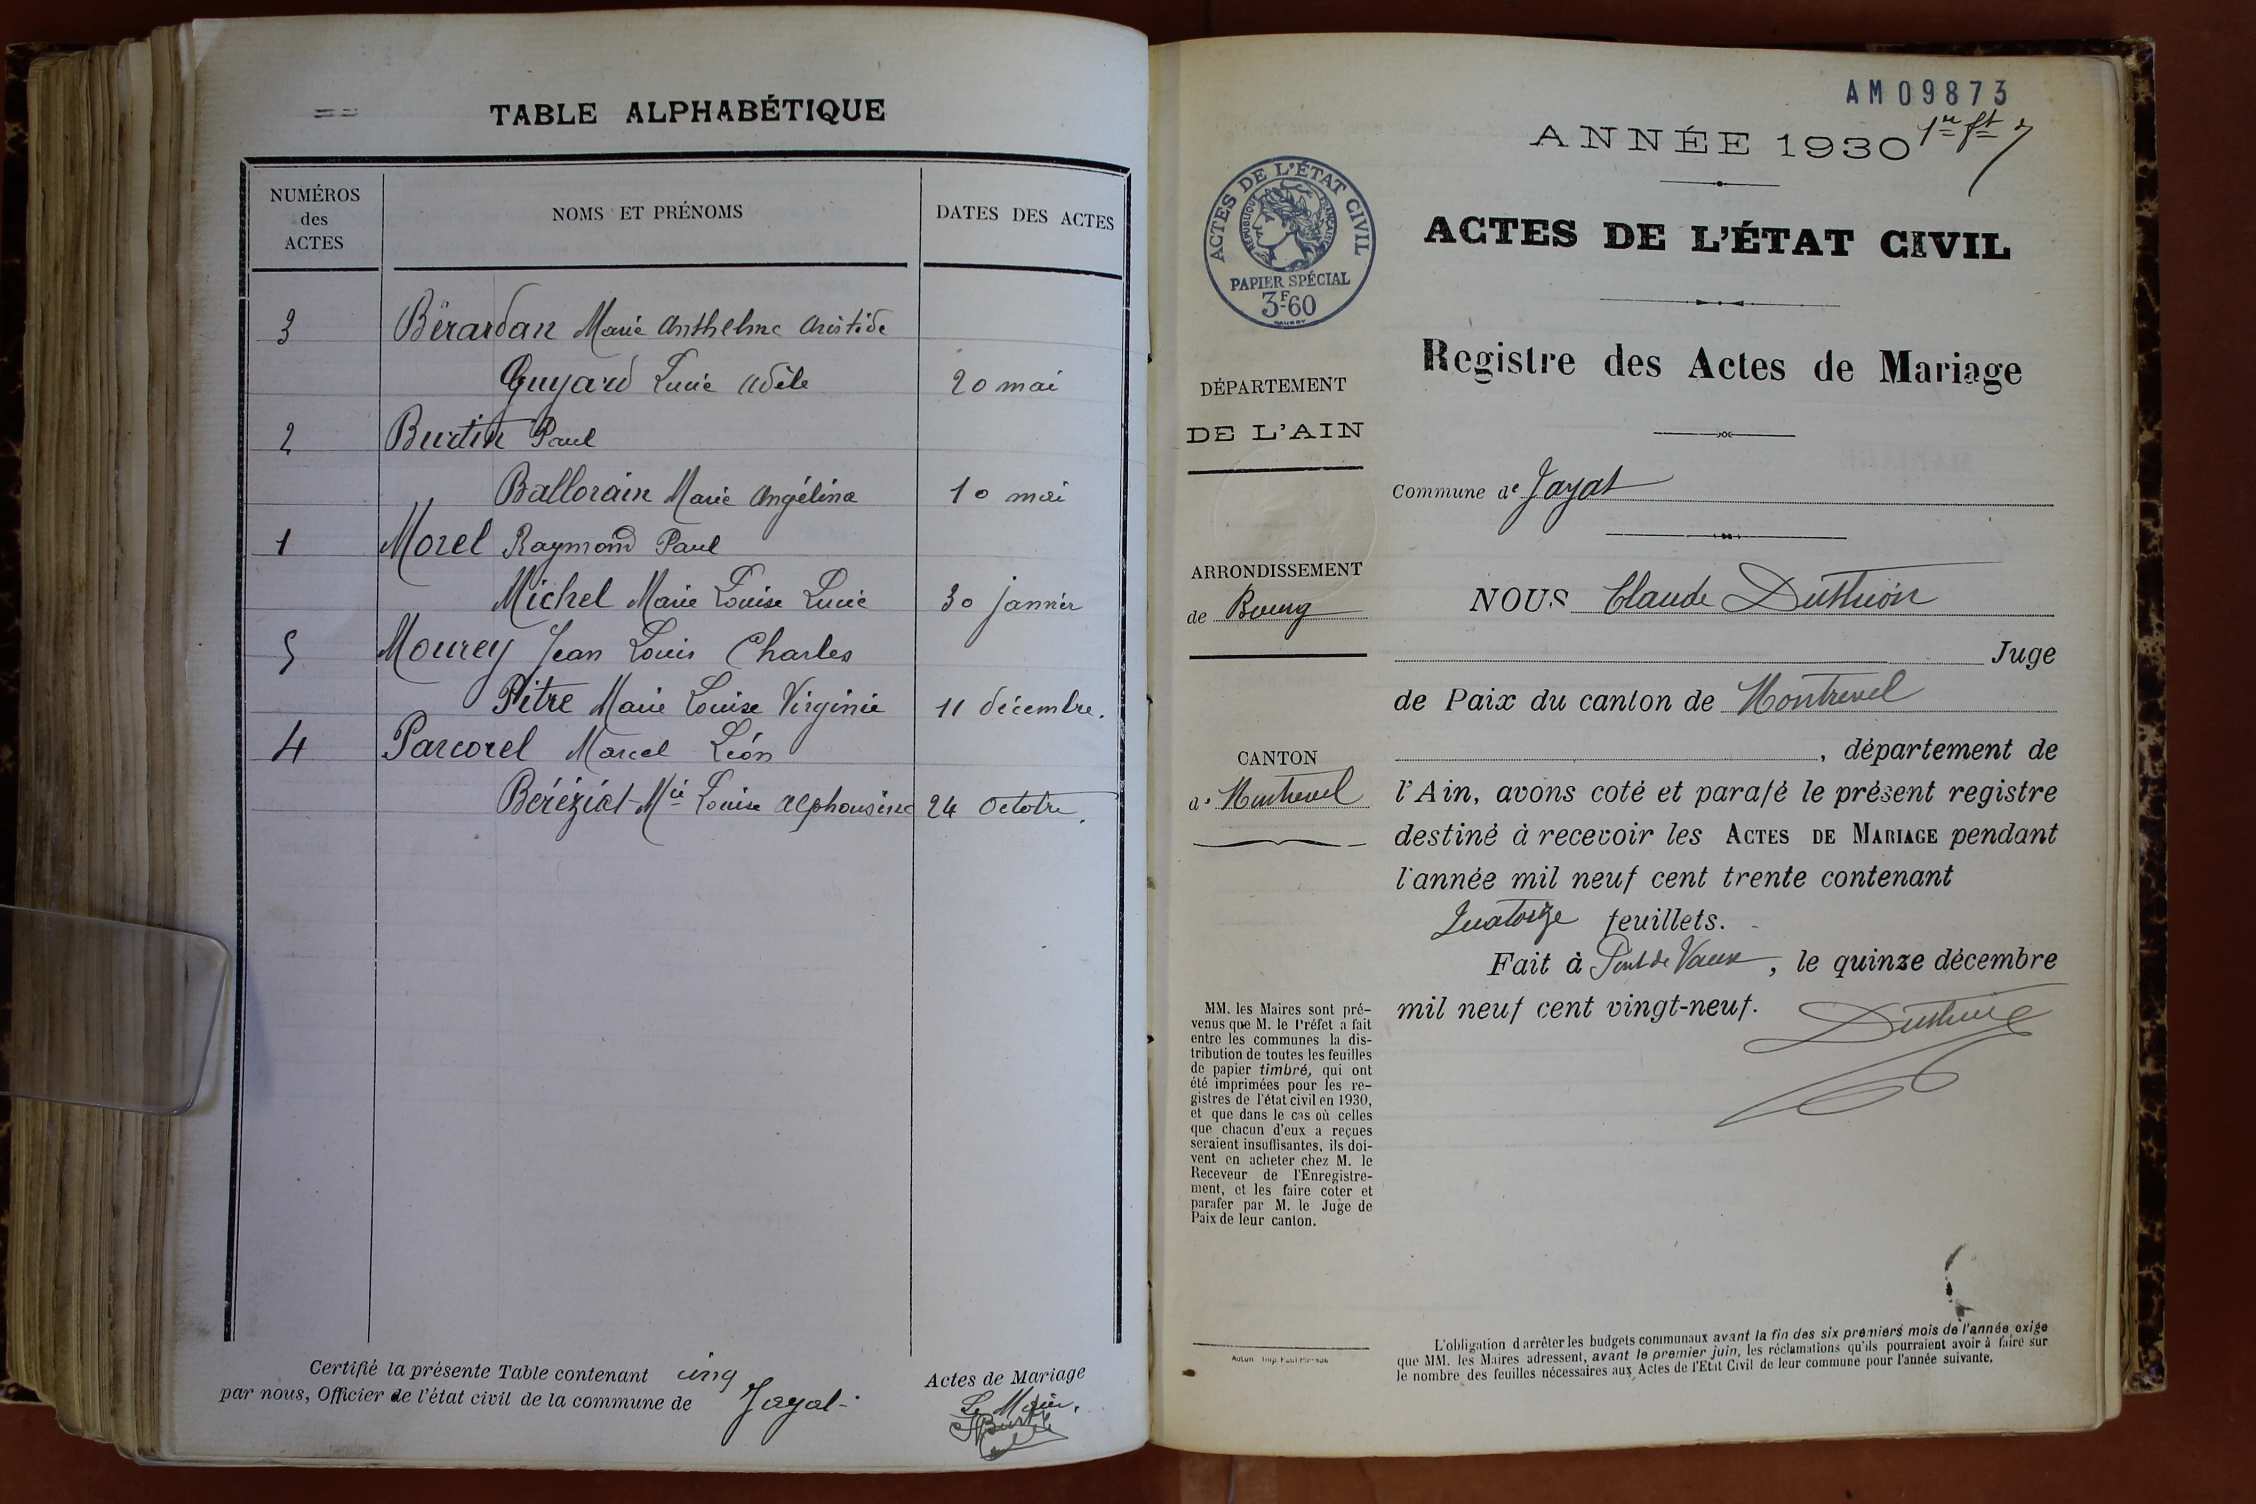 TABLE ALPHABÉTIQUE
NUMÉROS des ACTES
NOMS ET PRÉNOMS
DATES DES ACTES
3 Bérardan Marie Anthelme Aristide
Guyard Lucie Adèle 20 mai
2 Burtin Paul
Ballorain Marie Angélina 10 mai
1 Morel Raymond Paul
Michel Marie Louise Lucie 30 janvier
5 Mourey Jean Louis Charles
Pitre Marie Louise Virginie 11 décembre.
4 Parcorel Marcel Léon
Béréziat Mie Louise Alphonsine 24 Octobre.
Certifié la présente Table contenant cinq Actes de Mariage
par nous, Officier de l'état civil de la commune de Jayat
Le Maire,
AM09873
ANNÉE 1930
ACTES DE L'ÉTAT CIVIL
RÉPUBLIQUE FRANÇAISE
PAPIER SPÉCIAL
3F-60
ACTES DE L'ÉTAT CIVIL
Registre des Actes de Mariage
DÉPARTEMENT
DE L'AIN
Commune de Jayat
ARRONDISSEMENT
de Bourg
CANTON
de Montrevel
NOUS Claude Duthion
Juge
de Paix du canton de Montrevel
, département de
l'Ain, avons coté et parafé le présent registre
destiné à recevoir les ACTES DE MARIAGE pendant
l'année mil neuf cent trente contenant
Quatorze feuillets.
Fait à Pont de Vaux, le quinze décembre
mil neuf cent vingt-neuf.
MM. les Maires sont pré-
venus que M. le Préfet a fait
entre les communes la dis-
tribution de toutes les feuilles
de papier timbré, qui ont
été imprimées pour les re-
gistres de l'état civil en 1930,
et que dans le cas où celles
que chacun d'eux a reçues
seraient insuffisantes, ils doi-
vent en acheter chez M. le
Receveur de l'Enregistre-
ment, et les faire coter et
parafer par M. le Juge de
Paix de leur canton.
L'obligation d'arrêter les budgets communaux avant la fin des six premiers mois de l'année exige
que MM. les Maires adressent, avant le premier juin, les réclamations qu'ils pourraient avoir à faire sur
le nombre des feuilles nécessaires aux Actes de l'Etat Civil de leur commune pour l'année suivante.